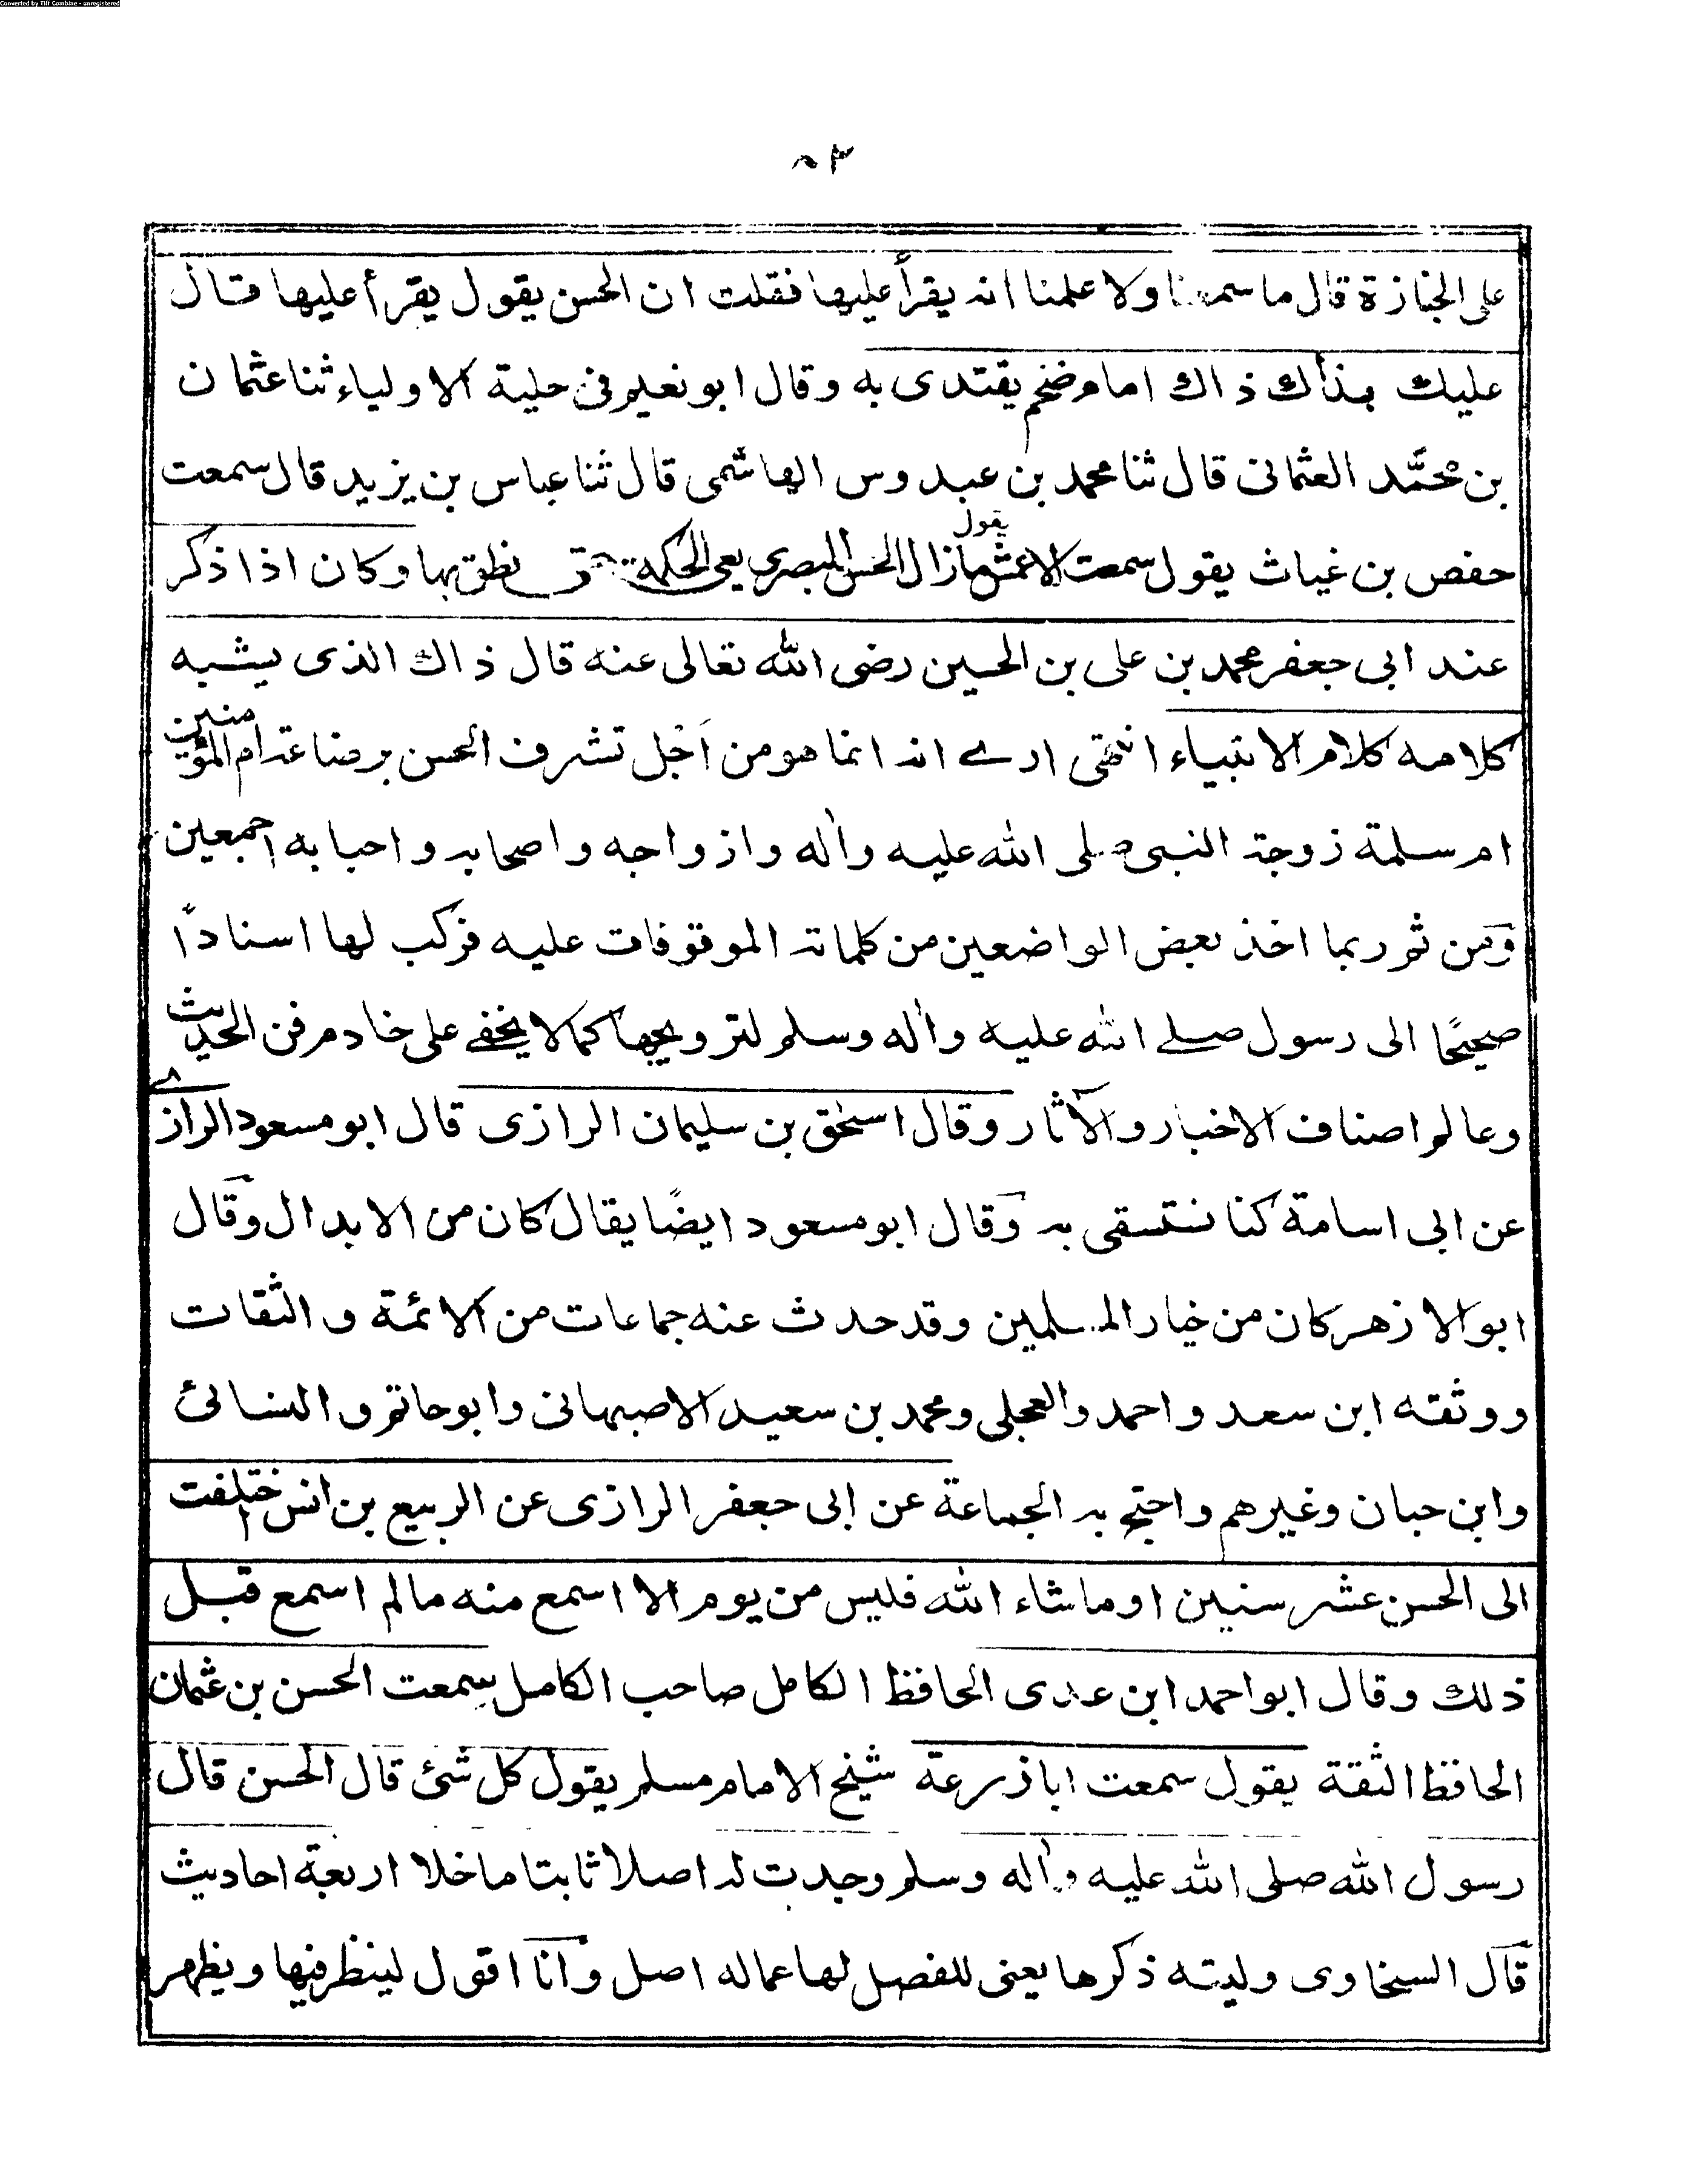 Converted by Tiff Combine - unregistered
على الجنازة قال ما سمعنا ولا علمنا انه يقرأ عليها فقلت ان الحسن يقول يقرأ عليها قال
عليك بذاك ذاك امام ضخم يقتدى به وقال ابو نعيم فى حلية الاولياء ثنا عثمان
بن محمَّد العثمانى قال ثنا محمد بن عبدوس الهاشمى قال ثنا عباس بن يزيد قال سمعت
حفص بن غياث يقول سمعت الاعمش يقول مازال الحسن البصرى يعى الحكمة حتى نطق بها وكان اذا ذكر
عند ابى جعفر محمد بن على بن الحسين رضى الله تعالى عنه قال ذاك الذى يشبه
كلامه كلام الانبياء انتهى ارے انه انما هو من اَجْل تشرف الحسن برضاعة ام المؤمنين
ام سلمة زوجة النبى صلى الله عليه واٰله وازواجه واصحابه واحبابه اجمعين
ومن ثم ربما اخذ بعض الواضعين من كلماته الموقوفات عليه فركب لها اسنادًا
صحيحًا الى رسول صلے الله عليه واٰله وسلم لترويجها كما لا يخفے على خادم فن الحديث
وعالم اصناف الاخبار والآثار وقال اسحٰق بن سليمان الرازى قال ابو مسعود الرازے
عن ابى اسامة كنا نستسقى به وقال ابو مسعود ايضًا يقال كان من الابدال وقال
ابو الازهر كان من خيار المسلمين وقد حدث عنه جماعات من الائمة والثقات
ووثقه ابن سعد واحمد والعجلى ومحمد بن سعيد الاصبهانى وابو حاتم والنسائى
وابن حبان وغيرهم واحتج به الجماعة عن ابى جعفر الرازى عن الربيع بن انس اختلفت
الى الحسن عشر سنين او ماشاء الله فليس من يوم الا اسمع منه مالم اسمع قبل
ذلك وقال ابو احمد ابن عدى الحافظ الكامل صاحب الكامل سمعت الحسن بن عثمان
الحافظ الثقة يقول سمعت ابا زرعة شيخ الامام مسلم يقول كل شئ قال الحسن قال
رسول الله صلى الله عليه واٰله وسلم وجدت له اصلا ثابتا ما خلا اربعة احاديث
قال السخاوى وليته ذكرها يعنى للفصل لها عما له اصل وانا اقول لينظر فيها ويظهر